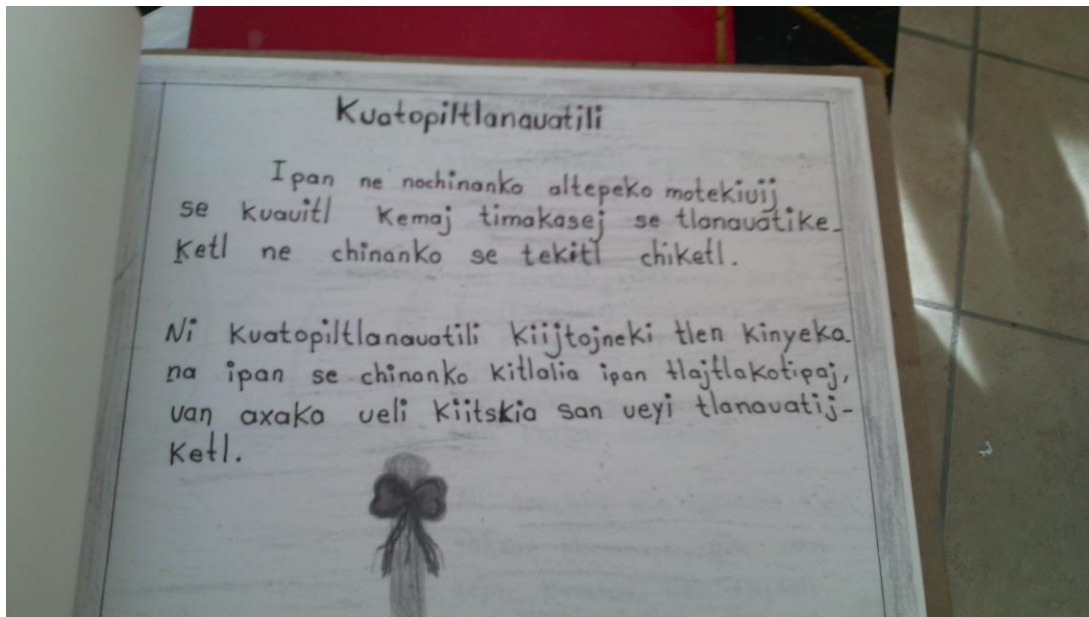 Kuatopiltlanauatili
Ipan ne nochinanko altepeko motekiuij
se kuauitl kemaj timakasej se tlanauatike-
ketl ne chinanko se tekitl chiketl.
Ni kuatopiltlanauatili kiijtojneki tlen kinyeka-
na ipan se chinanko kitlalia ipan tlajtlakotipaj,
uan axaka ueli kiitskia san ueyi tlanauatij-
ketl.